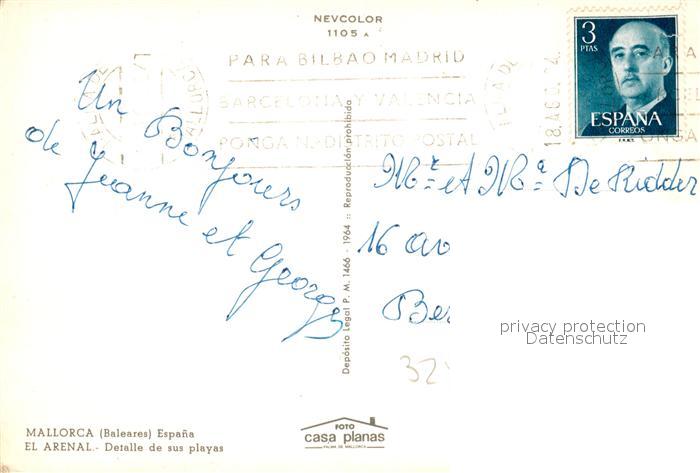 NEVCOLOR
1105 A
PARA BILBAO MADRID
BARCELONA Y VALENCIA
PONGA N.º DISTRITO POSTAL
3
PTAS
ESPAÑA
CORREOS
F.N.M.T.
18 AGO
Un Bonjours
de Jeanne et Georges
Mr et Ma De Ridder
16 av
Be
privacy protection
Datenschutz
32
Depósito Legal P. M. 1466 - 1964 :: Reproducción prohibida
MALLORCA (Baleares) España
EL ARENAL.- Detalle de sus playas
FOTO
casa planas
PALMA DE MALLORCA